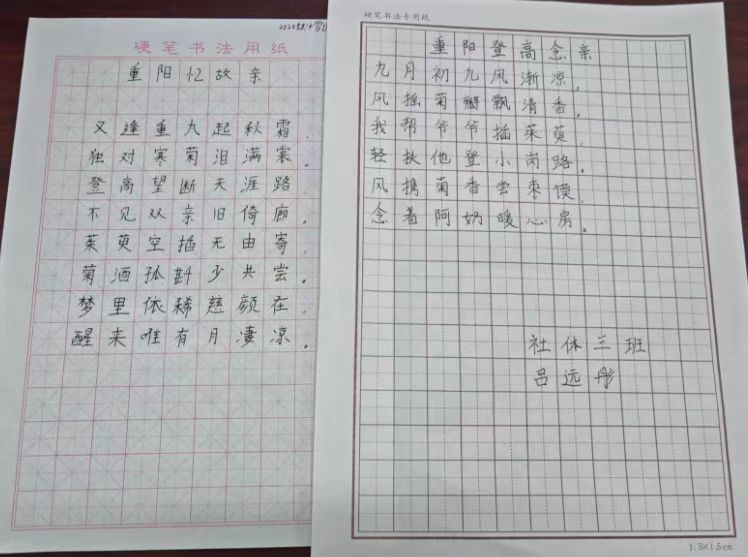 硬笔书法用纸
重阳忆故亲
又逢重九起秋霜,
独对寒菊泪满裳。
登高望断天涯路,
不见双亲旧倚廊。
茱萸空插无由寄,
菊酒孤斟少共尝。
梦里依稀慈颜在,
醒来唯有月凄凉。
硬笔书法专用纸
重阳登高念亲
九月初九风渐凉,
风摇菊瓣飘清香。
我帮爷爷插茱萸,
轻扶他登小岗路。
风携菊香尝枣馍,
念着阿奶暖心房。
社体三班
吕远彤
1.5×1.5cm